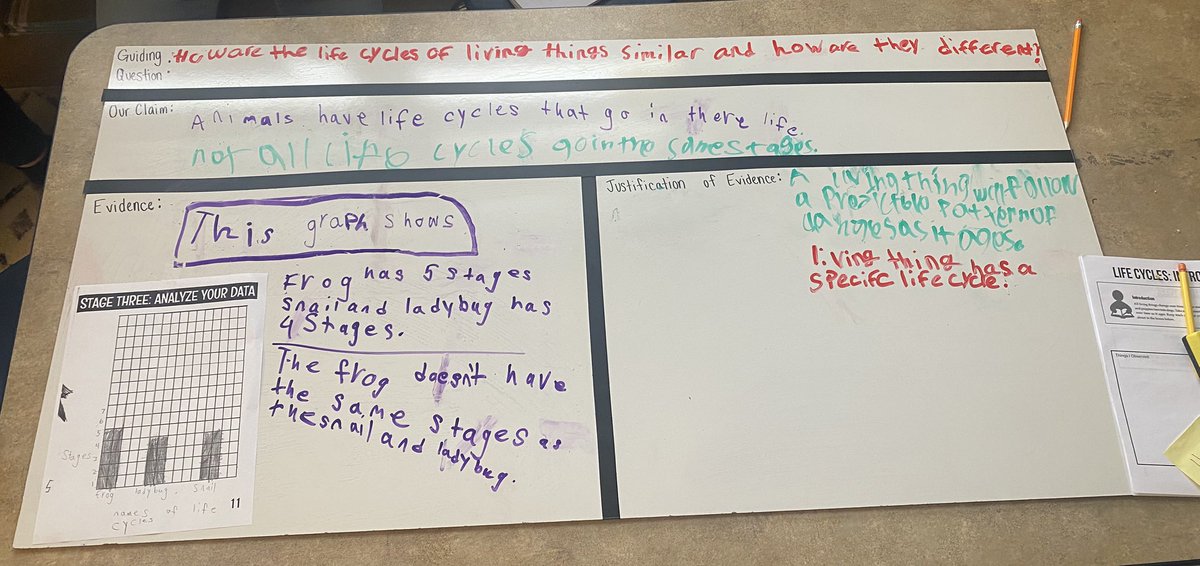 Guiding Question: How are the life cycles of living things similar and how are they different?
Our Claim: Animals have life cycles that go in there life.
not all life cycles go in the same stages.
Evidence:
This graph shows
Frog has 5 stages
snail and ladybug has
4 stages.
The frog doesn't have
the same stages as
the snail and ladybug.
STAGE THREE: ANALYZE YOUR DATA
7
6
5
4
3
2
1
Stages
5
frog ladybug. Snail
names of life
cycles
11
Justification of Evidence: A living thing will follow
a
pattern of
as it ages.
living thing has a
specifc life cycle.
LIFE CYCLES:
Introduction
Things I Observed